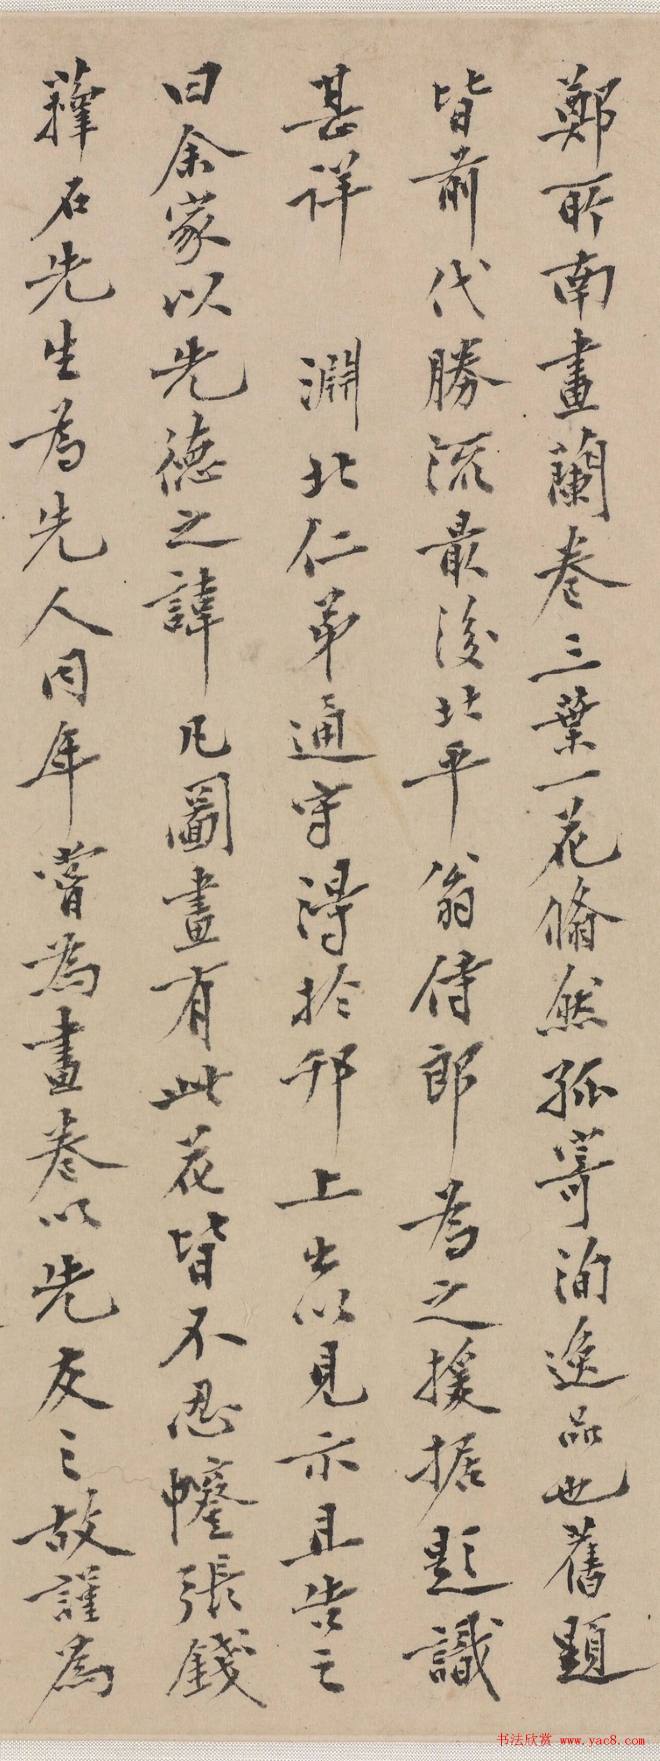 鄭所南畫蘭卷三葉一花翛然孤寄洵逸品也舊題
皆前代勝流最後北平翁侍郎為之援據題識
甚詳 淵北仁弟通守得於邗上出以見示且告之
曰余家以先德之諱凡圖畫有此花皆不忍㡧張錢
蘀石先生為先人同年嘗為畫卷以先友之故謹為
书法欣赏 www.yac8.com